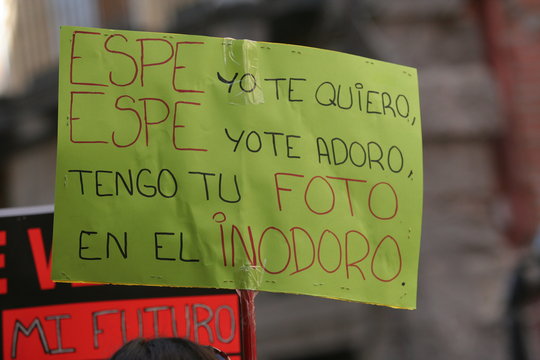 ESPE YO TE QUIERO,
ESPE YO TE ADORO,
TENGO TU FOTO
EN EL INODORO
MI FUTURO